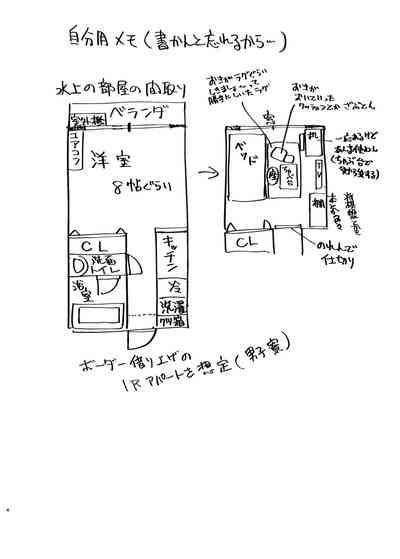 自分用メモ(書かんと忘れるから…)
水上の部屋の間取り
ベランダ
室外機
エアコン
洋室
8帖ぐらい
CL
洗面
トイレ
浴室
キッチン
冷
洗濯
クツ箱
おきがラグぐらい
しきましょーって
勝手にしいたラグ
おきが
おいていった
クッションとか ざぶとん
窓
ベッド
机
座
ちゃぶ台
TV
棚
一応あるけど
あんま使わん
(ちゃぶ台で
CL
のれんで
仕切り
ボーダー借り上げの
1Rアパートを想定(男子寮)